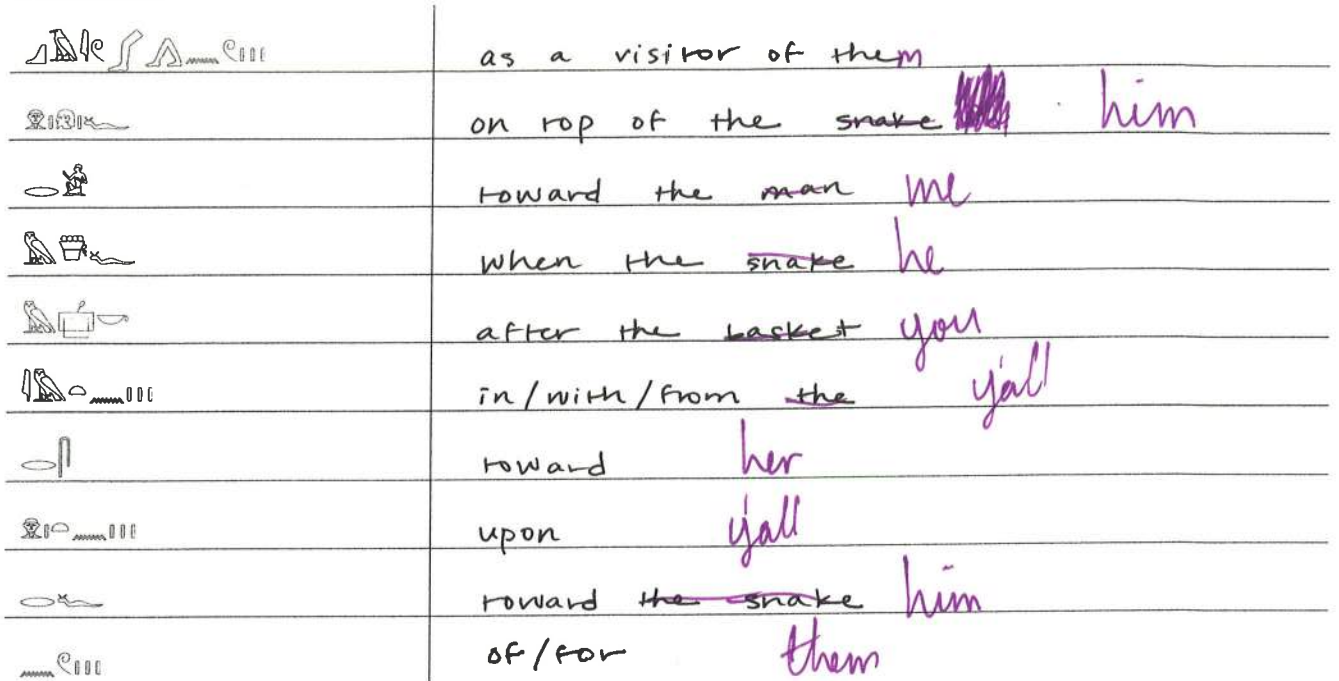 𓃀𓂻𓈖𓏲𓏥 as a visitor of them
𓁷𓏤𓁶𓏤𓆑 on top of the snake him
𓂋𓀀 toward the man me
𓅓𓏃𓆑 when the snake he
𓅓𓎡 after the basket you
𓇋𓅓𓏏𓈖𓏥 in/with/from the y'all
𓂋𓋴 toward her
𓁷𓏤𓏏𓈖𓏥 upon y'all
𓂋𓆑 toward the snake him
𓈖𓏲𓏥 of/for them